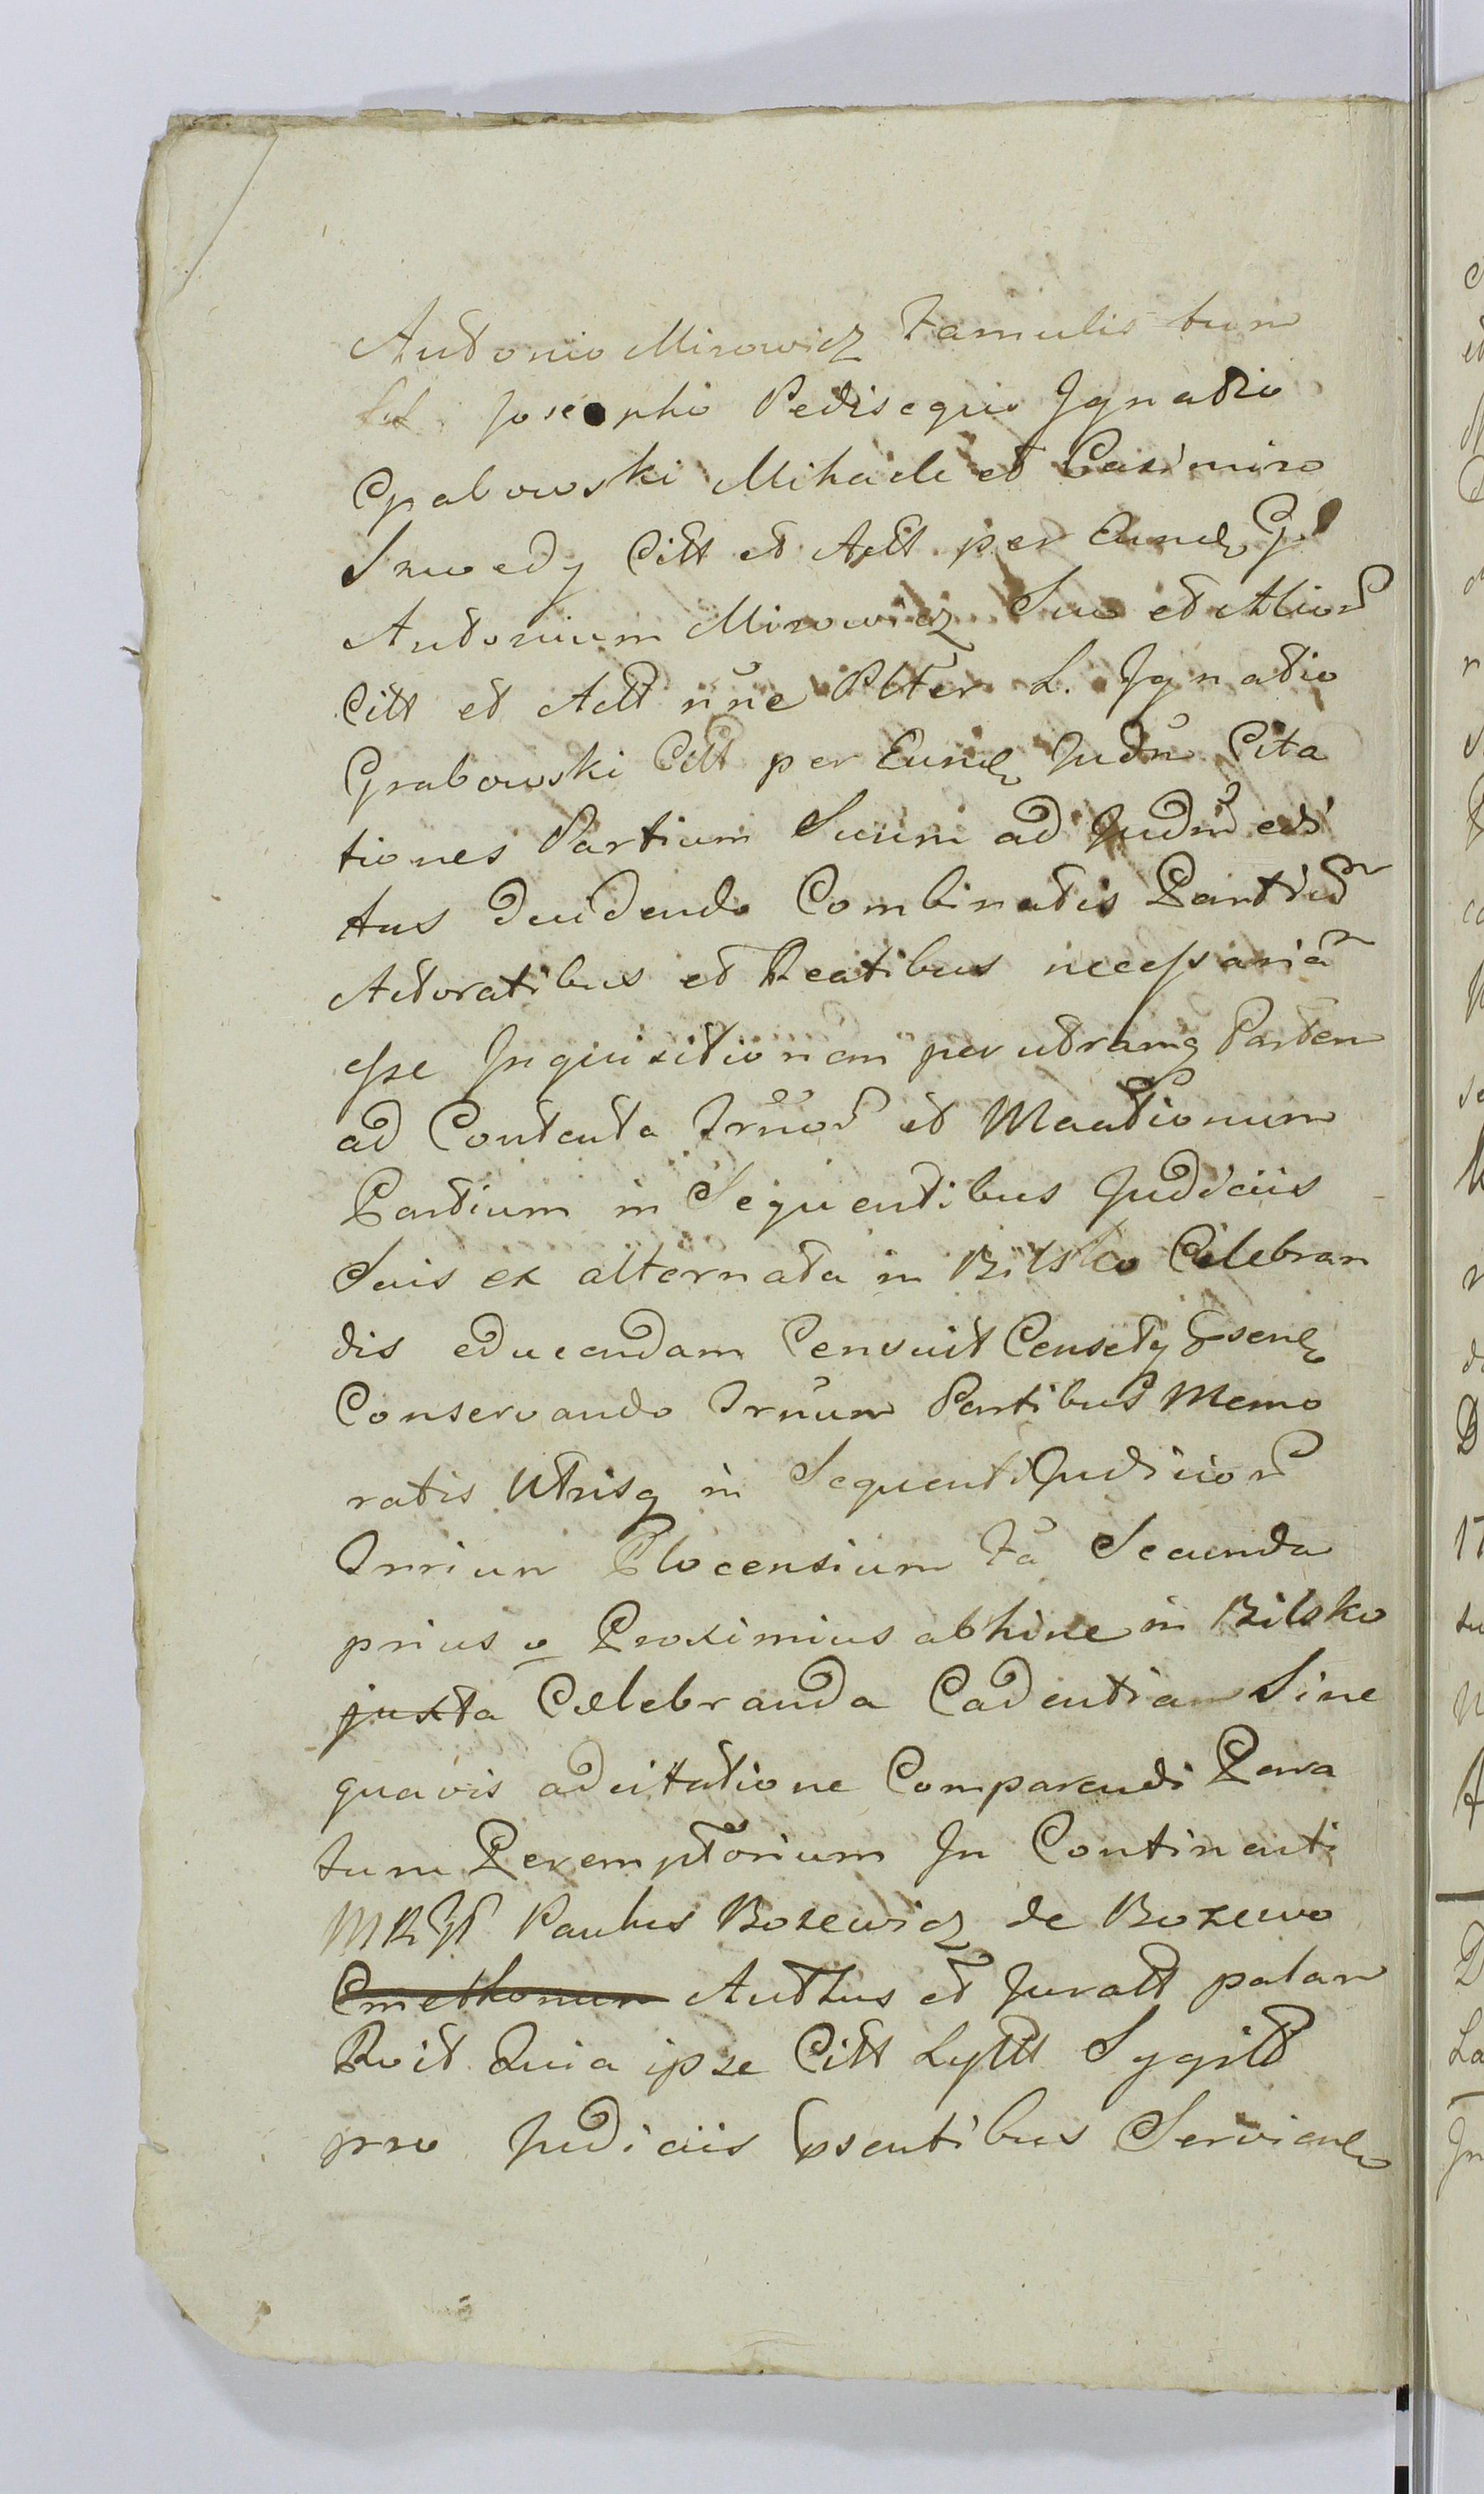 Antonio Mirowicz Famulis tum
Josepho Pedisequo Jgnatio
Grabowski Mihaele et Casimiro
Szwedy Citt et Actt per Eund G
Antonium Mirowicz Suo et Alior
Citt et Actt nne Alter L. Jgnatio
Grabowski Citt per Eund Judm Cita
tiones Partium Suum ad Judm edi
tas decidendo Combinatis Partium
Actoratibus et Reatibus necessariam
esse Jnquisitionem per utramq Partem
ad Contenta Trnor et Maationum
Partium in Sequentibus Judiciis
Suis ex alternata in Bilsko Celebran
dis educendam Censuit Censetq psend
Conservando Trnum Partibus Memo
ratis Utrisq in Sequenti Judicior
Trrium Plocensium Fa Secunda
prius v Proximius abhinc in Bilsko
juxta Celebranda Cadentiam Sine
quavis adcitatione Comparendi Para
tum Peremptorium Jn Continenti
MRGD Paulus Bozewicz de Bozewo
Cmethonum Actthus et Juratt palam
Rvit Quia ipse Citt Lyttt Sygilt
pro Judiciis psentibus Serviend